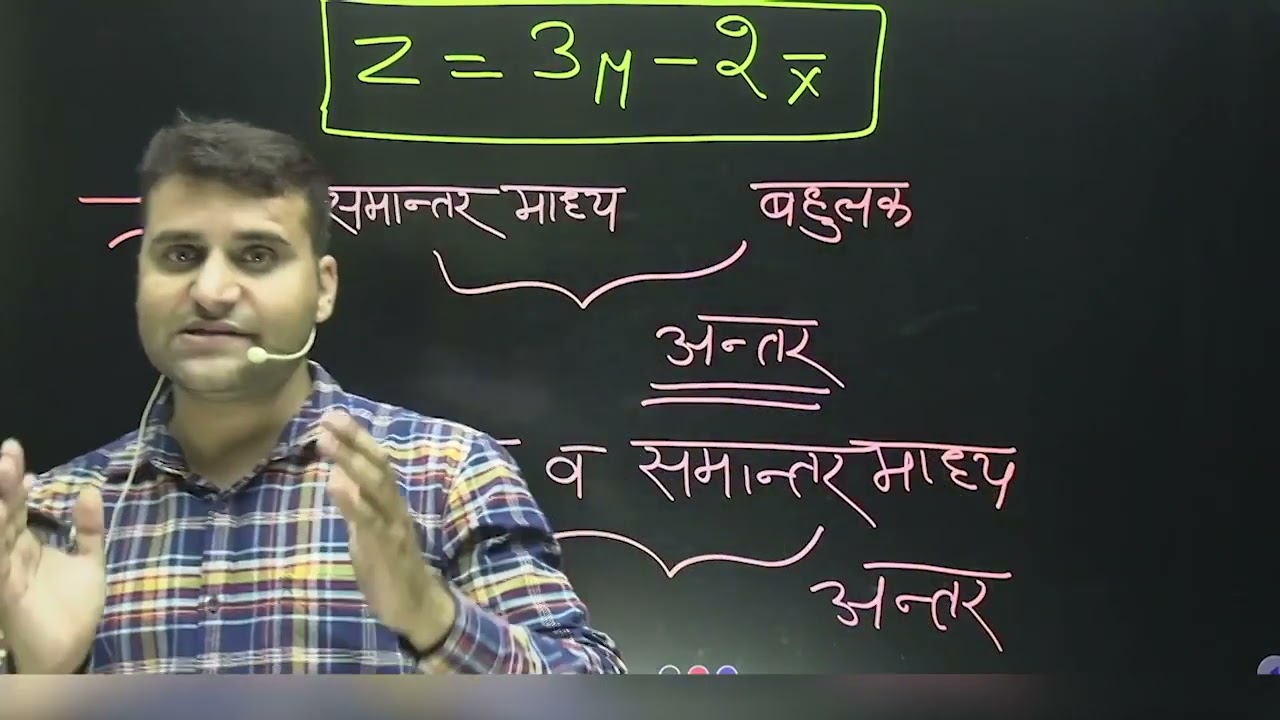 Z = 3M - 2x̄
समान्तर माध्य बहुलक
अन्तर
व समान्तर माध्य
अन्तर